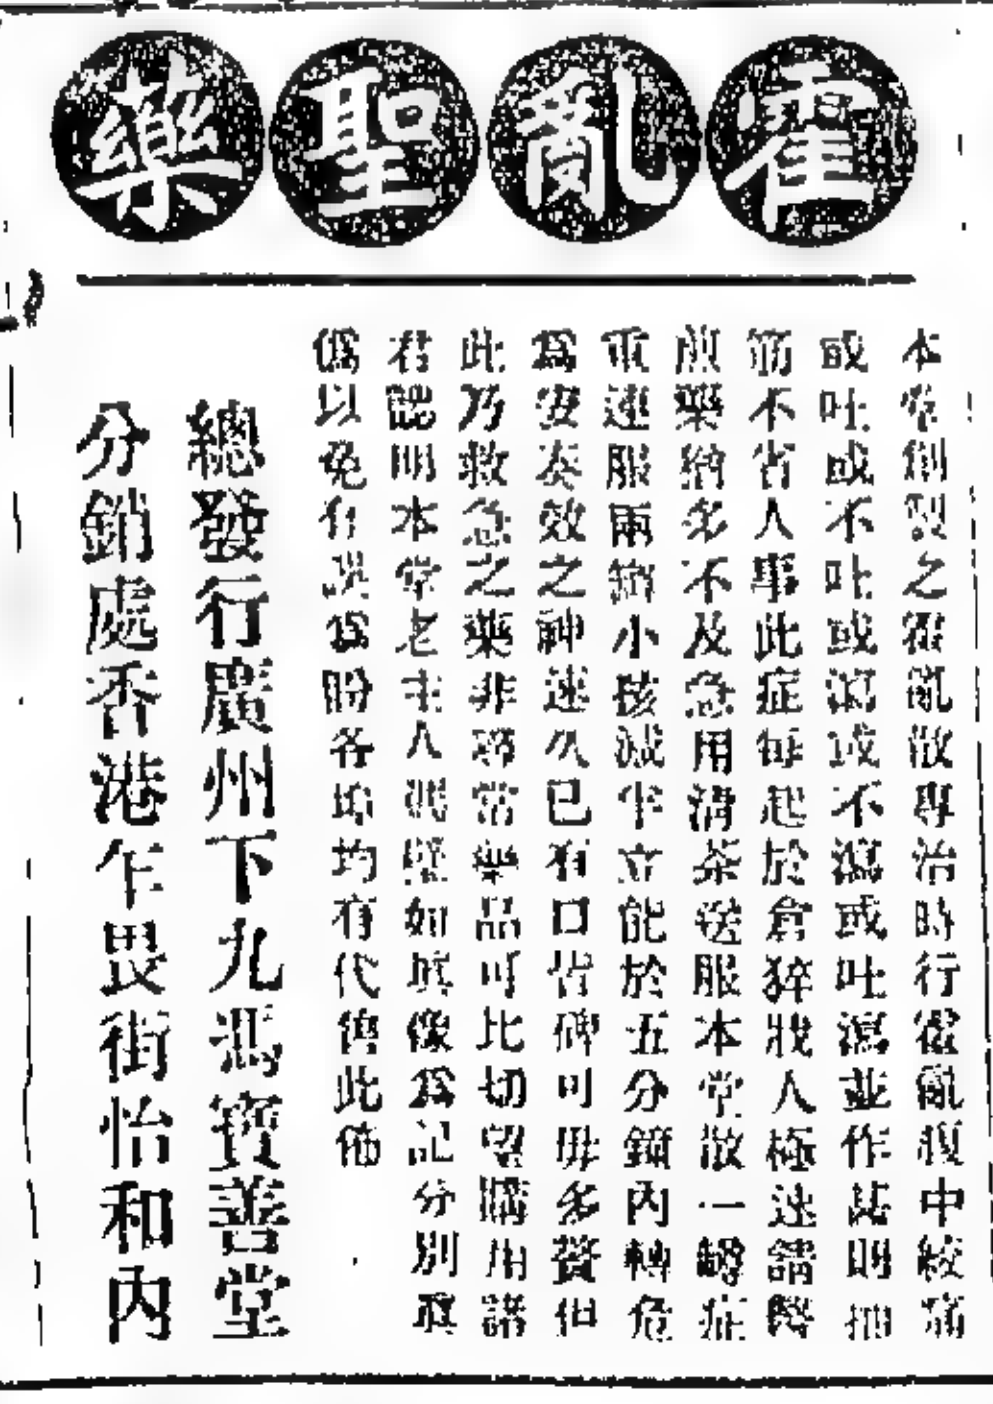 霍亂聖藥
本堂創製之霍亂散專治時行霍亂腹中絞痛
或吐或不吐或瀉或不瀉或吐瀉並作甚則抽
筋不省人事此症每起於倉猝戕人極速請醫
煎藥稍多不及急用清茶送服本堂散一罇症
重連服兩罇小孩減半立能於五分鐘內轉危
為安奏效之神速久已有口皆碑可毋多贅但
此乃救急之藥非尋常藥品可比切望購用諸
君認明本堂老主人馮 如玉像為記分別真
偽以免有誤為盼各埠均有代售此佈
總發行廣州下九馮寶善堂
分銷處香港乍畏街怡和內